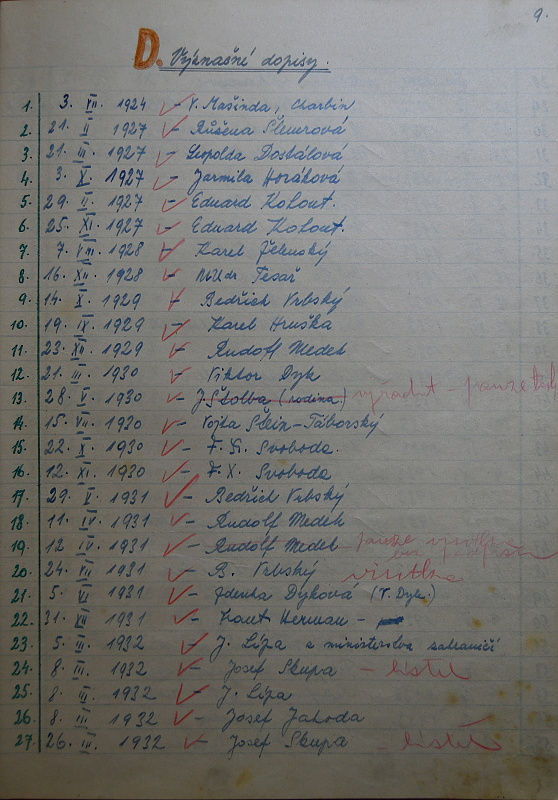 9.
D. Význašné dopisy.
1. 3. VII. 1924 – V. Mašinda, Charbin
2. 21. II 1927 – Růšena Šlemrová
3. 21. III. 1927 – Leopolda Dostálová
4. 3. X. 1927 – Jarmila Horáková
5. 29. II 1927 – Eduard Kohout.
6. 25. XI. 1927 – Eduard Kohout.
7. 7. VIII. 1928 – Karel Želenský
8. 16. XII. 1928 – MUdr Tesař
9. 14. X. 1929 – Bedřich Vrbský
10. 19. IX. 1929 – Karel Hruška
11. 23. XII. 1929 – Rudolf Medek
12. 21. III. 1930 – Viktor Dyk
13. 28. V. 1930 – J. Štolba (rodina) vyřadit – pouze
14. 15. VII 1930 – Vojta Štein-Táborský
15. 22. X. 1930 – F. X. Svoboda.
16. 12. XI. 1930 – F. X. Svoboda
17. 29. V. 1931 – Bedřich Vrbský
18. 11. IV. 1931 – Rudolf Medek
19. 12 IV. 1931 – Rudolf Medek – pouze visitka
bez podpisu
20. 24. VII 1931 – B. Vrbský visitka
21. 5. VI 1931 – Zdenka Dyková (V. Dyk.)
22. 31. XII 1931 – Knut Herman –
23. 5. III. 1932 – J. Líza z ministerstva zahraničí
24. 8. III. 1932 – Josef Skupa – lístek
25. 8. III. 1932 – J. Líza
26. 8. III. 1932 – Josef Jahoda
27. 26. III. 1932 – Josef Skupa – lístek